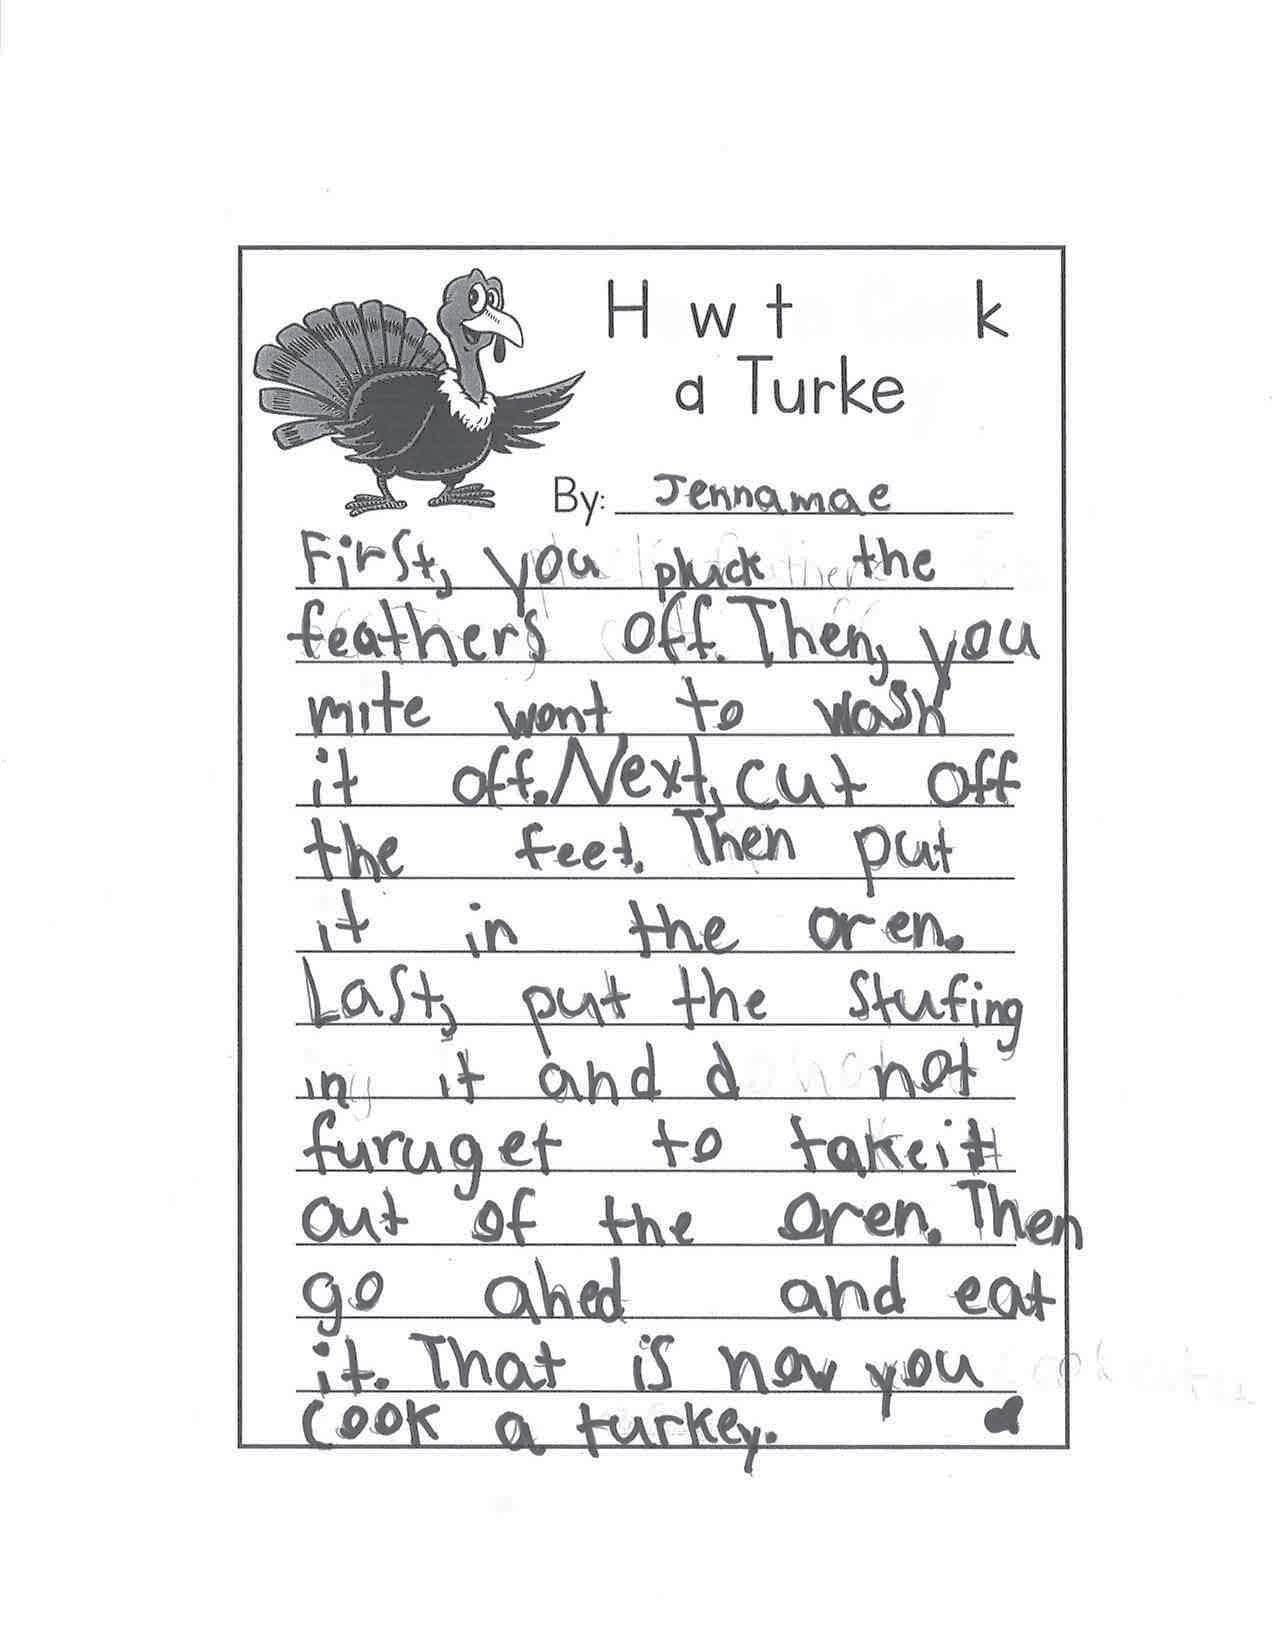 H w t k
a Turke
By: Jennamae
First, you pluck the
feathers off. Then, you
mite wont to wash
it off. Next, cut off
the feet. Then put
it in the oren.
Last, put the stufing
in it and d not
furuget to take it
out of the oren. Then
go ahed and eat
it. That is how you
cook a turkey.